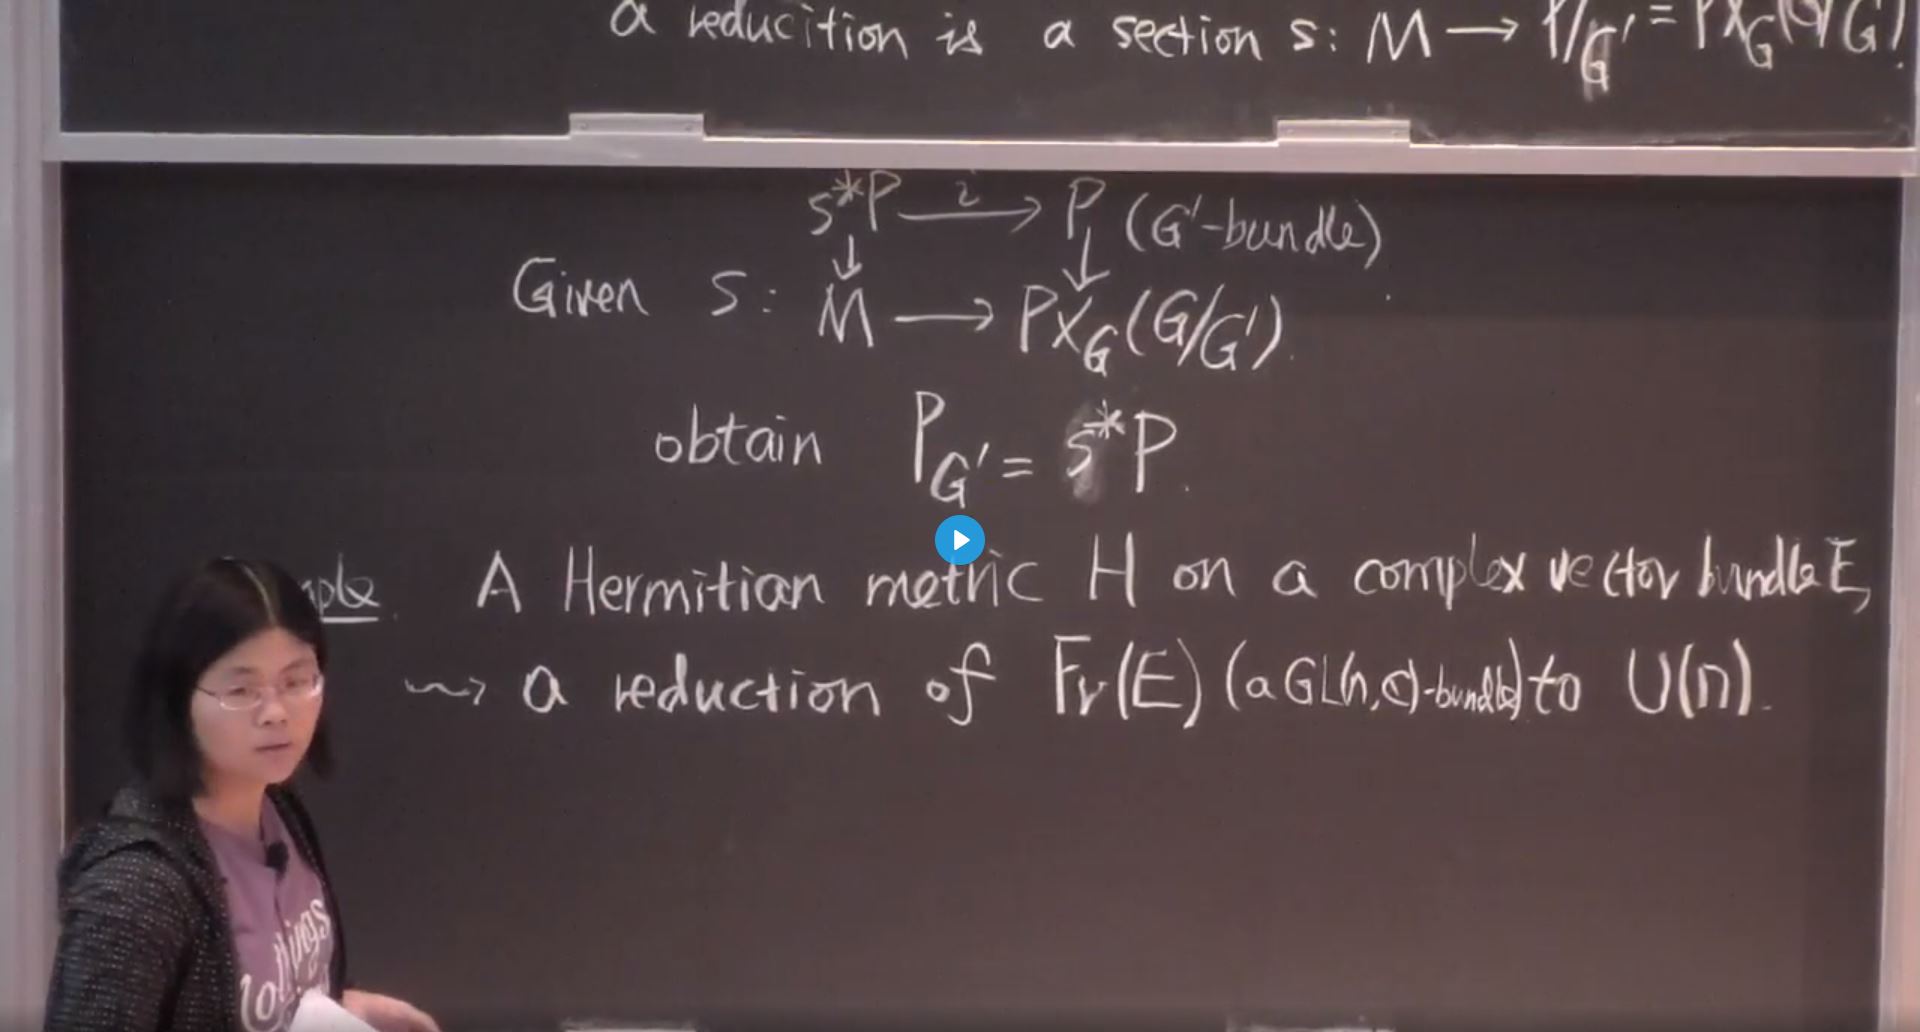 a reducition is a section s: M → P/G' = P×_G(G/G').
s*P →^i P (G'-bundle)
↓ ↓
Given s: M → P×_G(G/G').
obtain P_G' = s*P.
A Hermitian metric H on a complex vector bundle E,
⇝ a reduction of Fr(E) (a GL(n,ℂ)-bundle) to U(n).